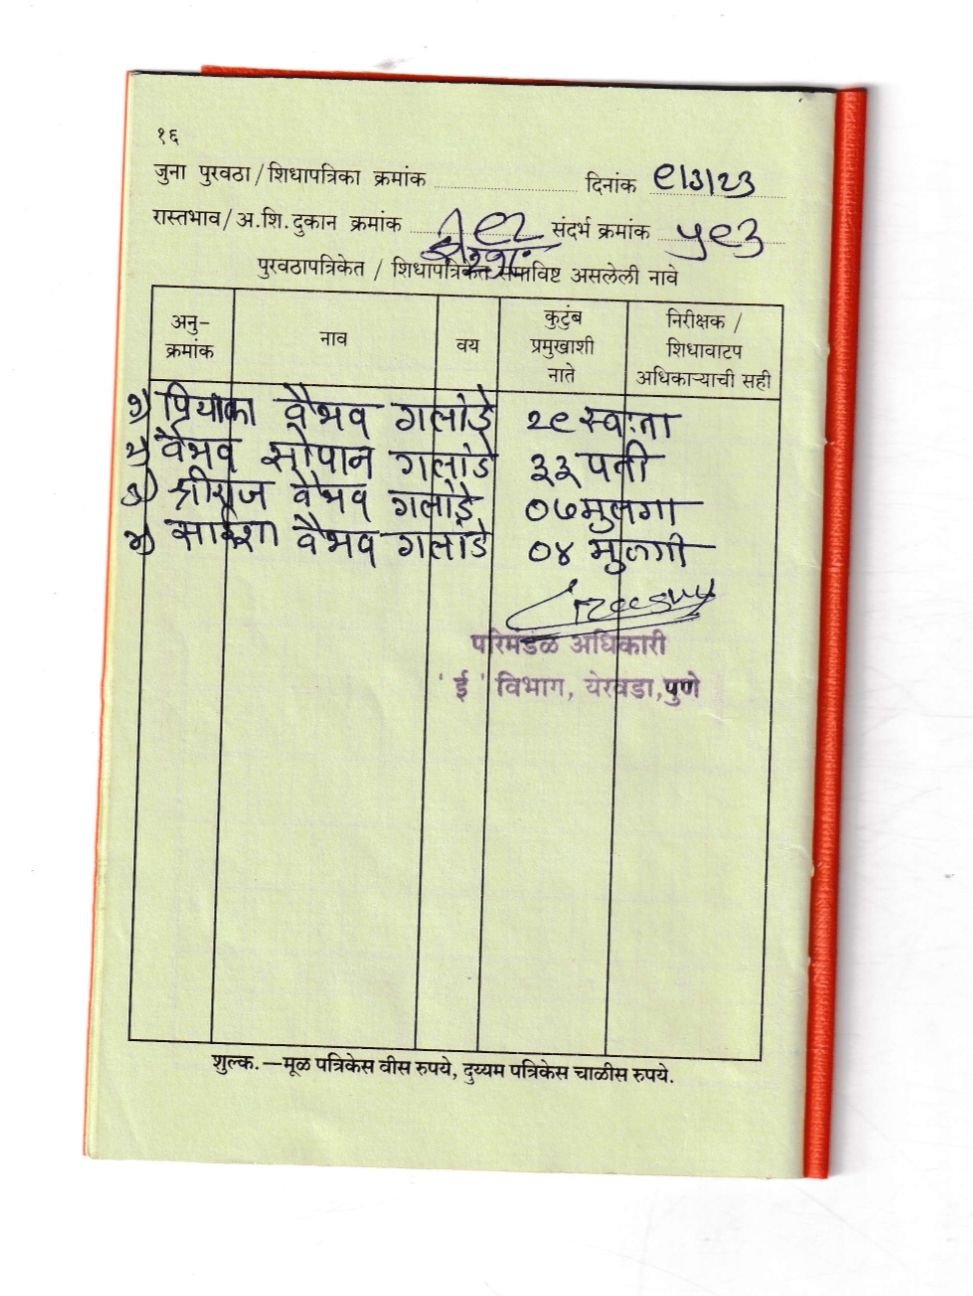 १६
जुना पुरवठा/शिधापत्रिका क्रमांक दिनांक ९/३/२३
रास्तभाव/अ.शि.दुकान क्रमांक संदर्भ क्रमांक ५९३
पुरवठापत्रिकेत / शिधापत्रिकेत समाविष्ट असलेली नावे
अनु-क्रमांक नाव वय कुटुंब प्रमुखाशी नाते निरीक्षक / शिधावाटप अधिकाऱ्याची सही
१) प्रियांका वैभव गलांडे २९ स्वःता
२) वैभव सोपान गलांडे ३३ पती
३) श्रीराज वैभव गलांडे ०७ मुलगा
४) साईशा वैभव गलांडे ०४ मुलगी
परिमंडळ अधिकारी
'ई' विभाग, येरवडा,पुणे
शुल्क.—मूळ पत्रिकेस वीस रुपये, दुय्यम पत्रिकेस चाळीस रुपये.